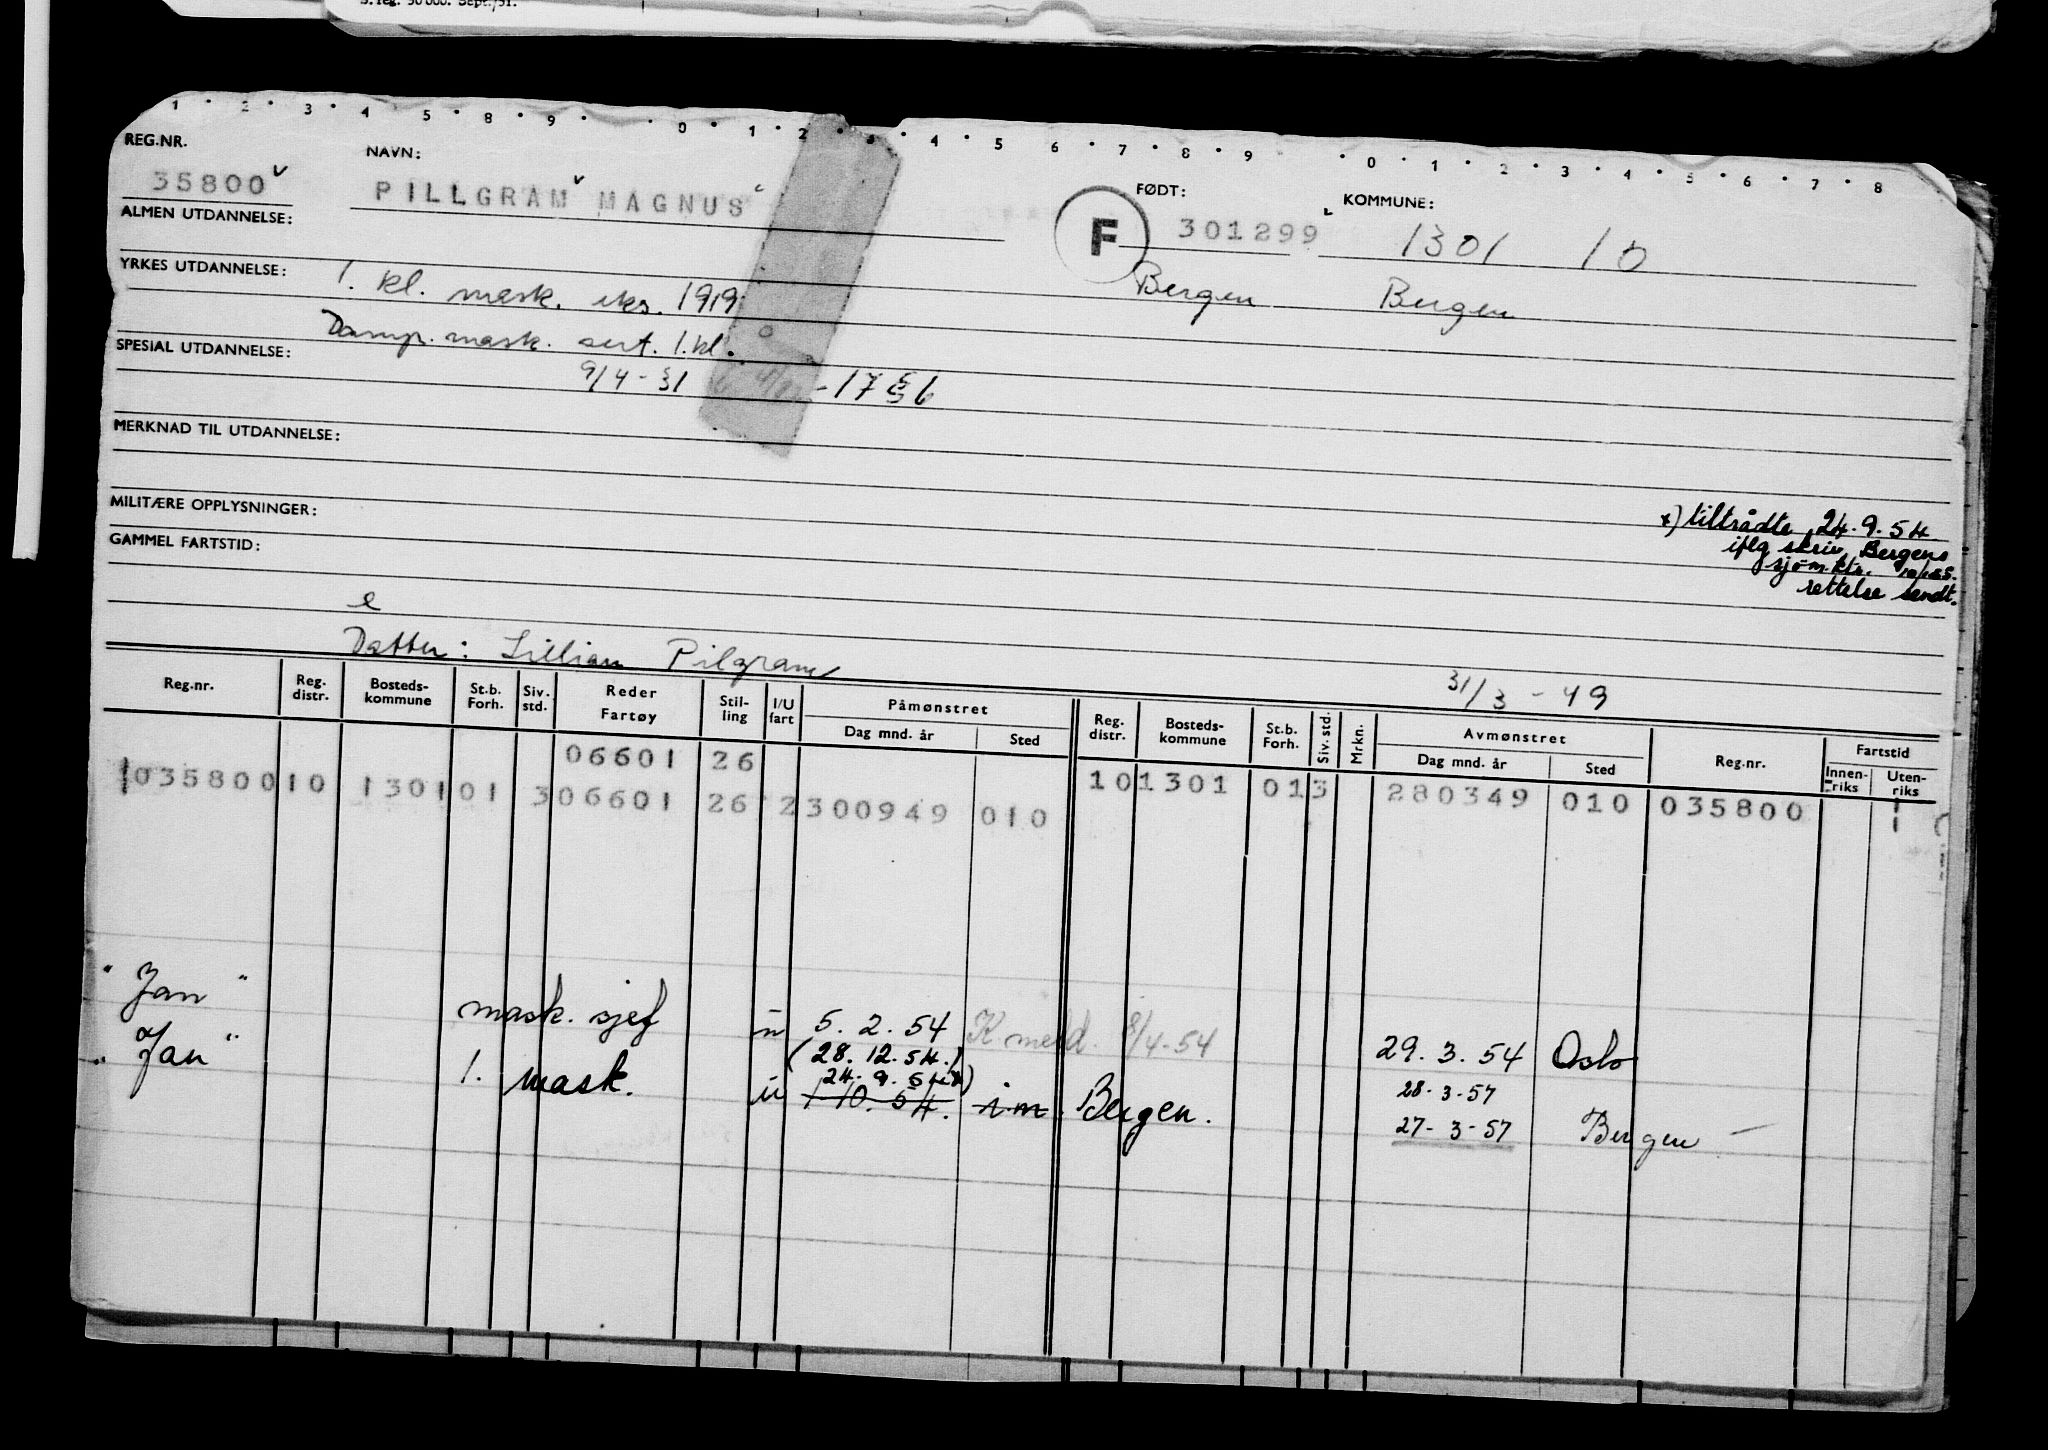 S.reg. 50 000. Sept./51.
1 2 3 4 5 8 9 0 1 2 3 4 5 6 7 8 9 0 1 2 3 4 5 6 7 8
REG.NR. NAVN: FØDT: KOMMUNE:
35800 PILLGRAM MAGNUS F 301299 1301 10
ALMEN UTDANNELSE:
Bergen Bergen
YRKES UTDANNELSE: 1. kl. mask. eks. 1919
Damp. mask. sert. 1. kl.
SPESIAL UTDANNELSE:
9/4 - 31 - 17 56
MERKNAD TIL UTDANNELSE:
MILITÆRE OPPLYSNINGER:
x) tiltrådte 24.9.54
GAMMEL FARTSTID:
iflg skriv Bergens
sjøm.ktr.
rettelse sendt.
e
Datter: Lillian Pilgram
31/3 - 49
Reg.nr. Reg. distr. Bosteds-kommune St.b. Forh. Siv. std. Reder Fartøy Stil-ling I/U fart Påmønstret Dag mnd. år Sted Reg. distr. Bosteds-kommune St.b. Forh. Siv. std. Mrkn. Avmønstret Dag mnd. år Sted Reg.nr. Fartstid Innen-riks Uten-riks
06601 26
1035800 10 1301 01 3 06601 26 2 300949 010 10 1301 01 3 280349 010 035800
"Jan" mask. sjef u 5. 2. 54 K meld. 8/4-54 29. 3. 54 Oslo
(28. 12. 54.) 28-3-57
24. 9. 54 x)
"Jan" 1. mask. u 1 10. 54. i.m. Bergen. 27-3-57 Bergen